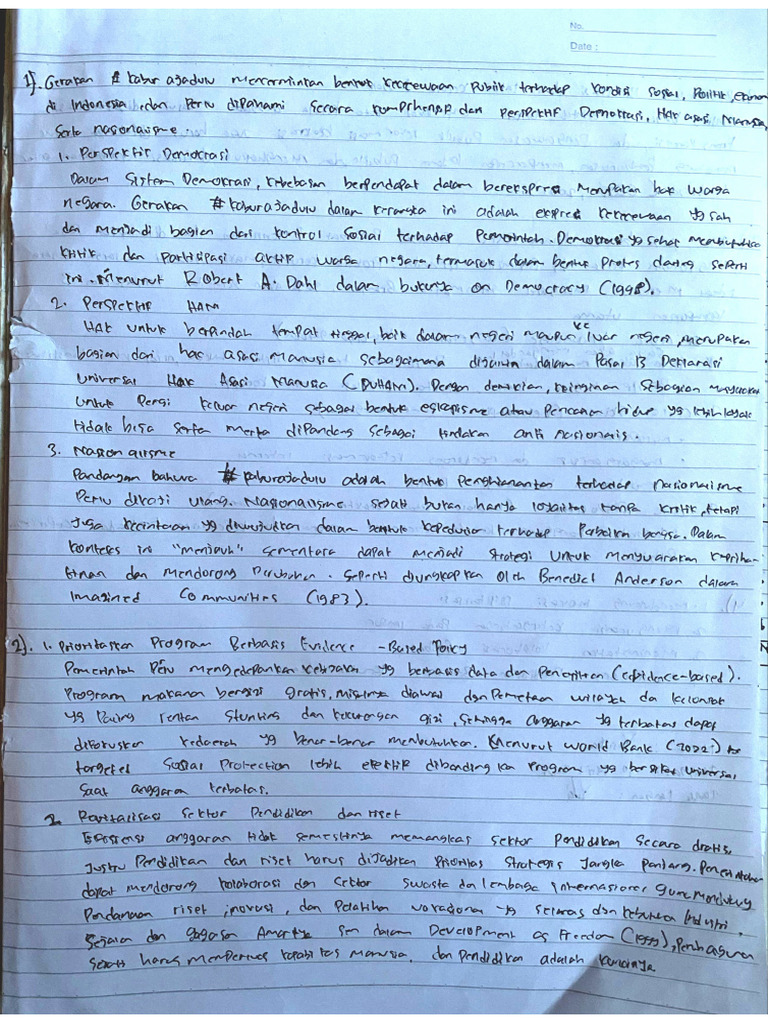 No.
Date :
1). Gerakan # kabur ajadulu mencerminkan bentuk kekecewaan publik terhadap kondisi sosial, politik, ekonomi
di Indonesia dan perlu dipahami secara komprehensif dari perspektif Demokrasi, Hak asasi Manusia,
serta nasionalisme.
1. Perspektif Demokrasi
Dalam Sistem Demokrasi, kebebasan berpendapat dalam berekspresi merupakan hak warga
negara. Gerakan #kaburajadulu dalam kerangka ini adalah ekspresi kekecewaan yg sah
dan menjadi bagian dari kontrol sosial terhadap Pemerintah. Demokrasi yg sehat membutuhkan
kritik dan partisipasi aktif warga negara, termasuk dalam bentuk protes daring seperti
ini. Menurut Robert A. Dahl dalam bukunya on Democracy (1998).
2. Perspektif HAM
Hak untuk berpindah tempat tinggal, baik dalam negeri maupun ke luar negeri, merupakan
bagian dari hak asasi manusia sebagaimana dijamin dalam Pasal 13 Deklarasi
Universal Hak Asasi Manusia (DUHAM). Dengan demikian, keinginan sebagian masyarakat
untuk pergi keluar negeri sebagai bentuk eskapisme atau pencarian hidup yg lebih layak
tidak bisa serta merta dipandang sebagai tindakan anti nasionalis.
3. Nasionalisme
Pandangan bahwa #kaburajadulu adalah bentuk penghianatan terhadap nasionalisme
perlu dikaji ulang. Nasionalisme sejati bukan hanya loyalitas tanpa kritik, tetapi
juga kecintaan yg diwujudkan dalam bentuk kepedulian terhadap Perbaikan bangsa. Dalam
konteks ini "menjauh" sementara dapat menjadi strategi untuk menyuarakan keprihe-
atinan dan mendorong Perubahan. Seperti diungkapkan oleh Benedict Anderson dalam
Imagined Communities (1983).
2). 1. Prioritaskan Program Berbasis Evidence - Based Policy
Pemerintah Perlu mengedepankan kebijakan yg berbasis data dan Penelitian (evidence-based).
Program makanan bergizi gratis, misalnya diawali dgn Pemetaan wilayah dan kelompok
yg paling rentan stunting dan kekurangan gizi, sehingga anggaran yg terbatas dapat
difokuskan kedaerah yg benar-benar membutuhkan. Menurut World Bank (2022)
targeted Social Protection lebih efektif dibandingkan Program yg bersifat universal
saat anggaran terbatas.
2. Revitalisasi Sektor Pendidikan dan riset
Efisiensi anggaran tidak semestinya memangkas sektor pendidikan secara drastis.
Justru Pendidikan dan riset harus dijadikan Prioritas Strategis Jangka Panjang. Pemerintah
dapat mendorong kolaborasi dgn sektor swasta dan lembaga Internasional guna mendukung
Pendanaan riset, inovasi, dan Pelatihan vokasional yg selaras dgn kebutuhan Industri.
Sejalan dgn gagasan Amartya Sen dalam Development as Freedom (1999), Pembangunan
sejati harus memperluas kapabilitas manusia, dan pendidikan adalah kuncinya.